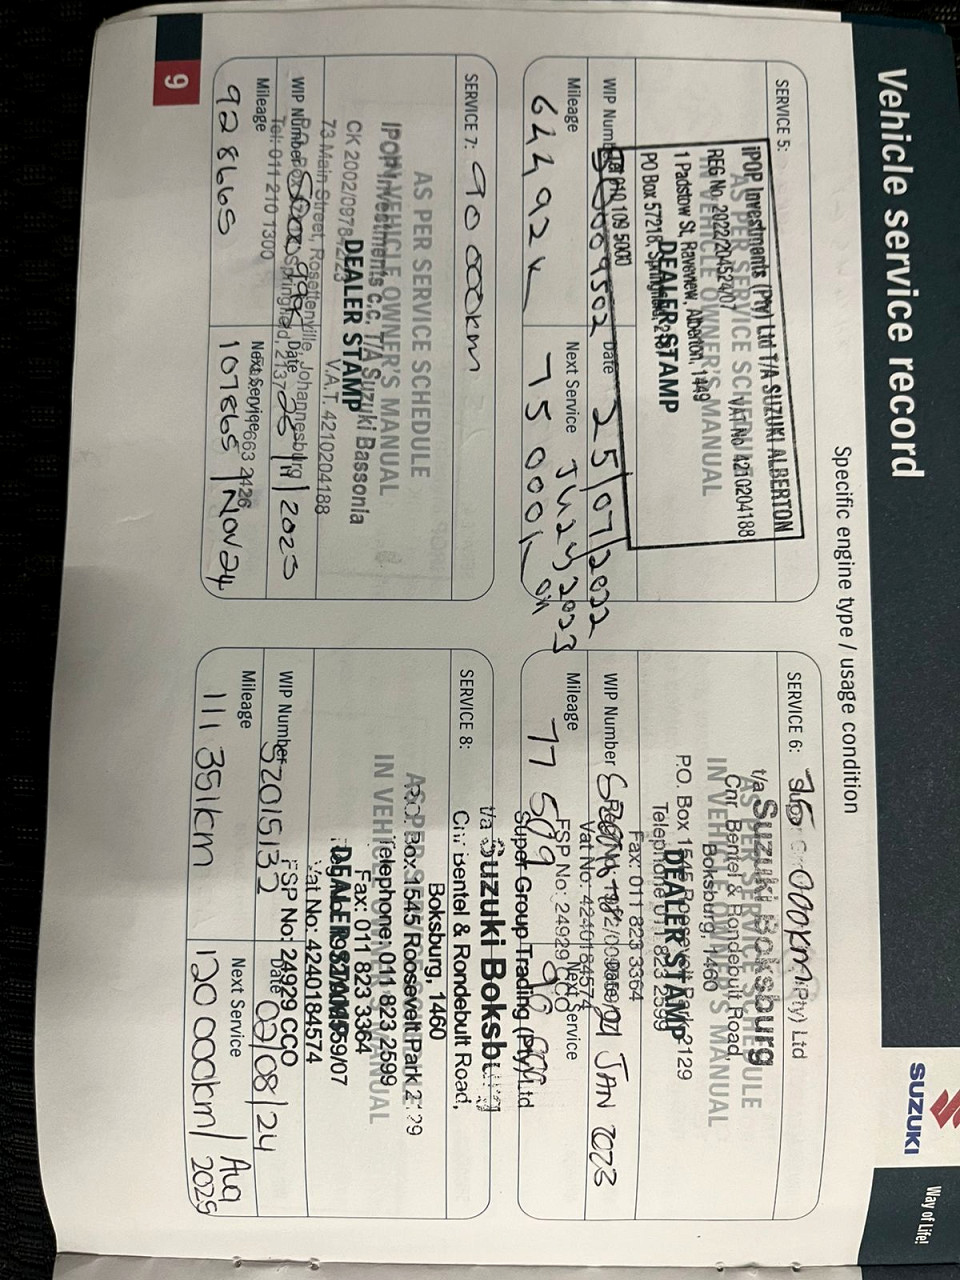 Vehicle service record
SUZUKI
Way of Life!
Specific engine type / usage condition
SERVICE 5:
AS PER SERVICE SCHEDULE
IN VEHICLE OWNER'S MANUAL
DEALER STAMP
iPOP Investments (Pty) Ltd T/A SUZUKI ALBERTON
REG No. 2022/204524/07 VAT No 4210204188
1 Padstow St, Raceview, Alberton, 1449
PO Box 57216, Springfield, 2137
Tel 010 109 5000
WIP Number
Date 25/07/2022
Mileage
64492K
Next Service July 2023
75000K
SERVICE 6: 75 000km
Super Group Trading (Pty) Ltd
t/a Suzuki Boksburg
AS PER SERVICE SCHEDULE
IN VEHICLE OWNER'S MANUAL
Cnr Bentel & Rondebult Road,
Boksburg, 1460
P.O. Box 1545 Roosevelt Park 2129
DEALER STAMP
Telephone: 011 823 2599
Fax: 011 823 3364
WIP Number
Date
JAN 2023
Vat No: 4240184574
FSP No: 24929 CCO
Mileage
77 509
Next Service
90 000
SERVICE 7: 90 000km
AS PER SERVICE SCHEDULE
IN VEHICLE OWNER'S MANUAL
DEALER STAMP
IPOP Investments C.C. T/A Suzuki Bassonia
V.A.T. 4210204188
73 Main Street, Rosettenville, Johannesburg
Springfield, 2137
Tel: 011 210 1300
WIP Number
Date
2023
Mileage
928665
Next Service
107865 / Nov 24
SERVICE 8:
Super Group Trading (Pty) Ltd
t/a Suzuki Boksburg
Cnr Bentel & Rondebult Road,
Boksburg, 1460
AS PER SERVICE SCHEDULE
IN VEHICLE OWNER'S MANUAL
P.O. Box 1545 Roosevelt Park 2129
Telephone: 011 823 2599
Fax: 011 823 3364
DEALER STAMP
Vat No: 4240184574
FSP No: 24929 CCO
WIP Number 52015132
Date 02/08/24
Mileage
111 351km
Next Service
120 000km / Aug 2025
9